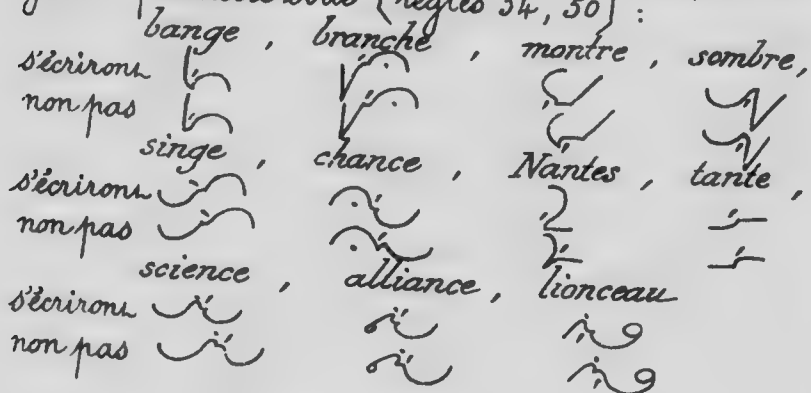 (règles 34, 50) :
bange, branche, montre, sombre,
s'écriront
non pas
singe, chance, Nantes, tante,
s'écriront
non pas
science, alliance, lionceau
s'écriront
non pas